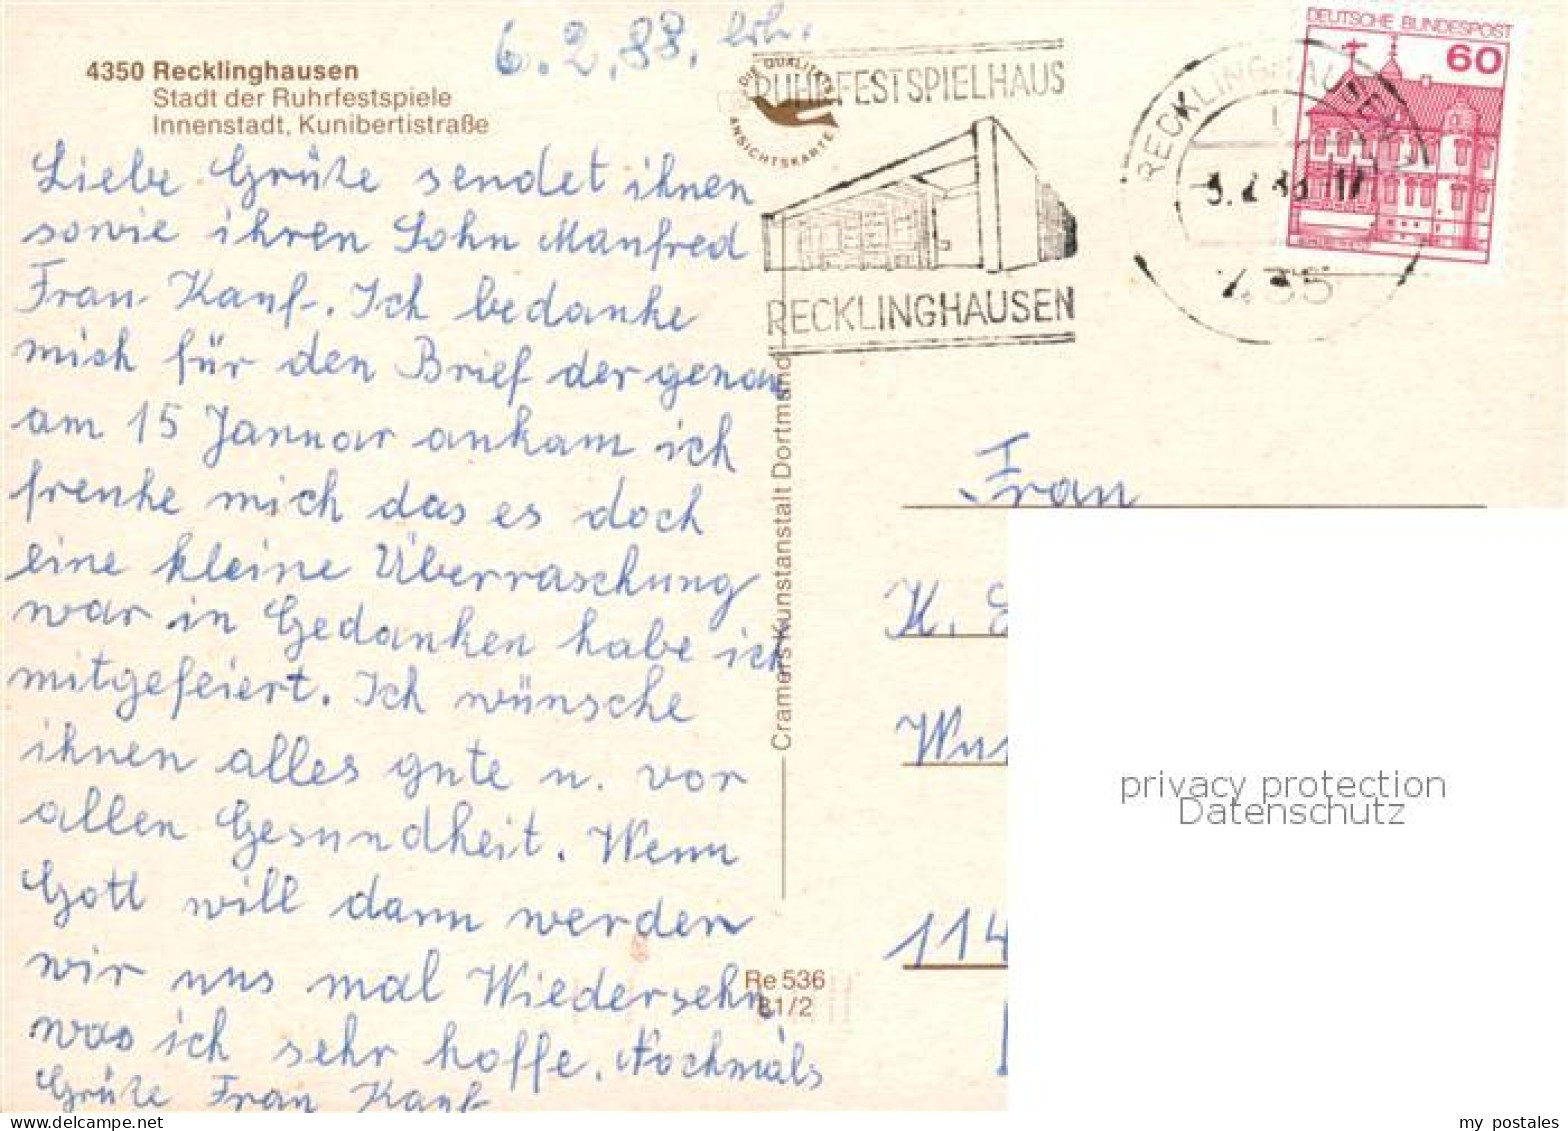 6.2.88. erh.
4350 Recklinghausen
Stadt der Ruhrfestspiele
Innenstadt, Kunibertistraße
DIE QUALITÄTS
ANSICHTSKARTE
RUHRFESTSPIELHAUS
RECKLINGHAUSEN
RECKLINGHAUSEN
435
DEUTSCHE BUNDESPOST
60
Liebe Grüße sendet ihnen
sowie ihren Sohn Manfred
Frau Kauf. Ich bedanke
mich für den Brief der genau
am 15 Januar ankam ich
freuhe mich das es doch
eine kleine Überraschung
war in Gedanken habe ich
mitgefeiert. Ich wünsche
ihnen alles gute u. vor
allen Gesundheit. Wenn
Gott will dann werden
wir uns mal Wiedersehn
was ich sehr hoffe. Nochmals
Grüße Frau Kauf
Cramers Kunstanstalt Dortmund
Re 536
81/2
Frau
K.
114
privacy protection
Datenschutz
my postales
www.delcampe.net